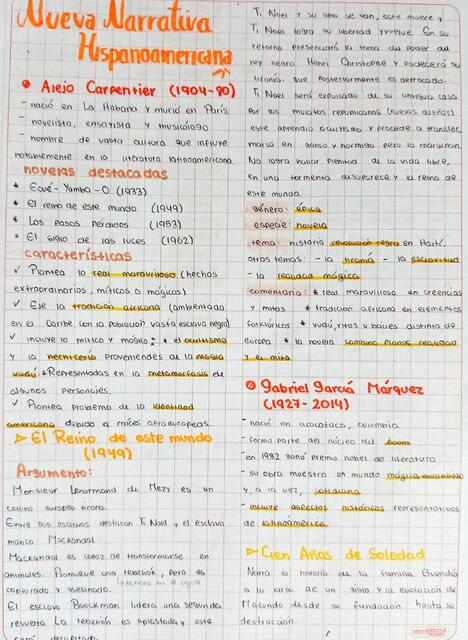 Nueva Narrativa
Hispanoamericana
Alejo Carpentier (1904-80)
- nació en La Habana y murió en París
- novelista, ensayista y musicólogo
- hombre de vasta cultura que influye
notablemente en la literatura latinoamericana.
novelas destacadas
* Ecué-Yamba-O (1933)
* El reino de este mundo (1949)
* Los pasos perdidos (1953)
* El siglo de las luces (1962)
características
✓ Plantea lo real maravilloso (hechos
extraordinarios, míticos o mágicos)
✓ Eje la tradición africana (ambientada
en el Caribe con la población vasta esclava negra)
✓ incluye lo mítico y mágico: * el ocultismo
y la hechicería provenientes de la magia
vudú * Representadas en la metamorfosis de
algunos personajes.
✓ Plantea problema de la identidad
americana debido a raíces afroeuropeas.
➤ El Reino de este mundo
(1949)
Argumento:
Monsieur Lenormand de Mezy es un
colono europeo tirano.
Entre sus esclavos destacan Ti Noel y el esclavo
manco Mackandal.
Mackandal es capaz de transformarse en
animales. Promueve una rebelión, pero es
capturado y asesinado.
El esclavo Bouckman lidera una segunda
revuelta. La rebelión es aplastada y este
será decapitado.
Ti Noel y su amo se van, este muere y
Ti Noel logra su libertad y vuelve. En su
retorno presenciará la toma del poder del
rey negro Henri Christophe y padecerá su
tiranía, que posteriormente es derrocado.
Ti Noel será expulsado de su antigua casa
por los mulatos republicanos (nuevos dueños)
este aprendió ocultismo y procede a transfor
marse en ganso y hormiga pero la maraíman.
No logra hallar plenitud de la vida libre,
en una tormenta desaparece y el reino de
este mundo.
género: épica
especie: novela
tema: historia revolución negra en Haití.
otros temas: - la tiranía - la esclavitud
- la realidad mágica
comentario: * real maravilloso en creencias
y mitos * tradición africana en elementos
folklóricos * vudú, ritos y bailes distintos de
europa * la novela combina planos realidad
y el mito
Gabriel García Márquez
(1927-2014)
- nació en aracataca, colombia
- formó parte del núcleo del boom
- en 1982 ganó premio nobel de literatura
- su obra muestra un mundo mágico maravilloso
y, a la vez, cotidiano
- incluye aspectos históricos representativos
de latinoamérica
➤ Cien Años de Soledad
Narra la historia de la familia Buendía
a lo largo de un siglo y la evolución de
Macondo desde su fundación hasta su
destrucción.